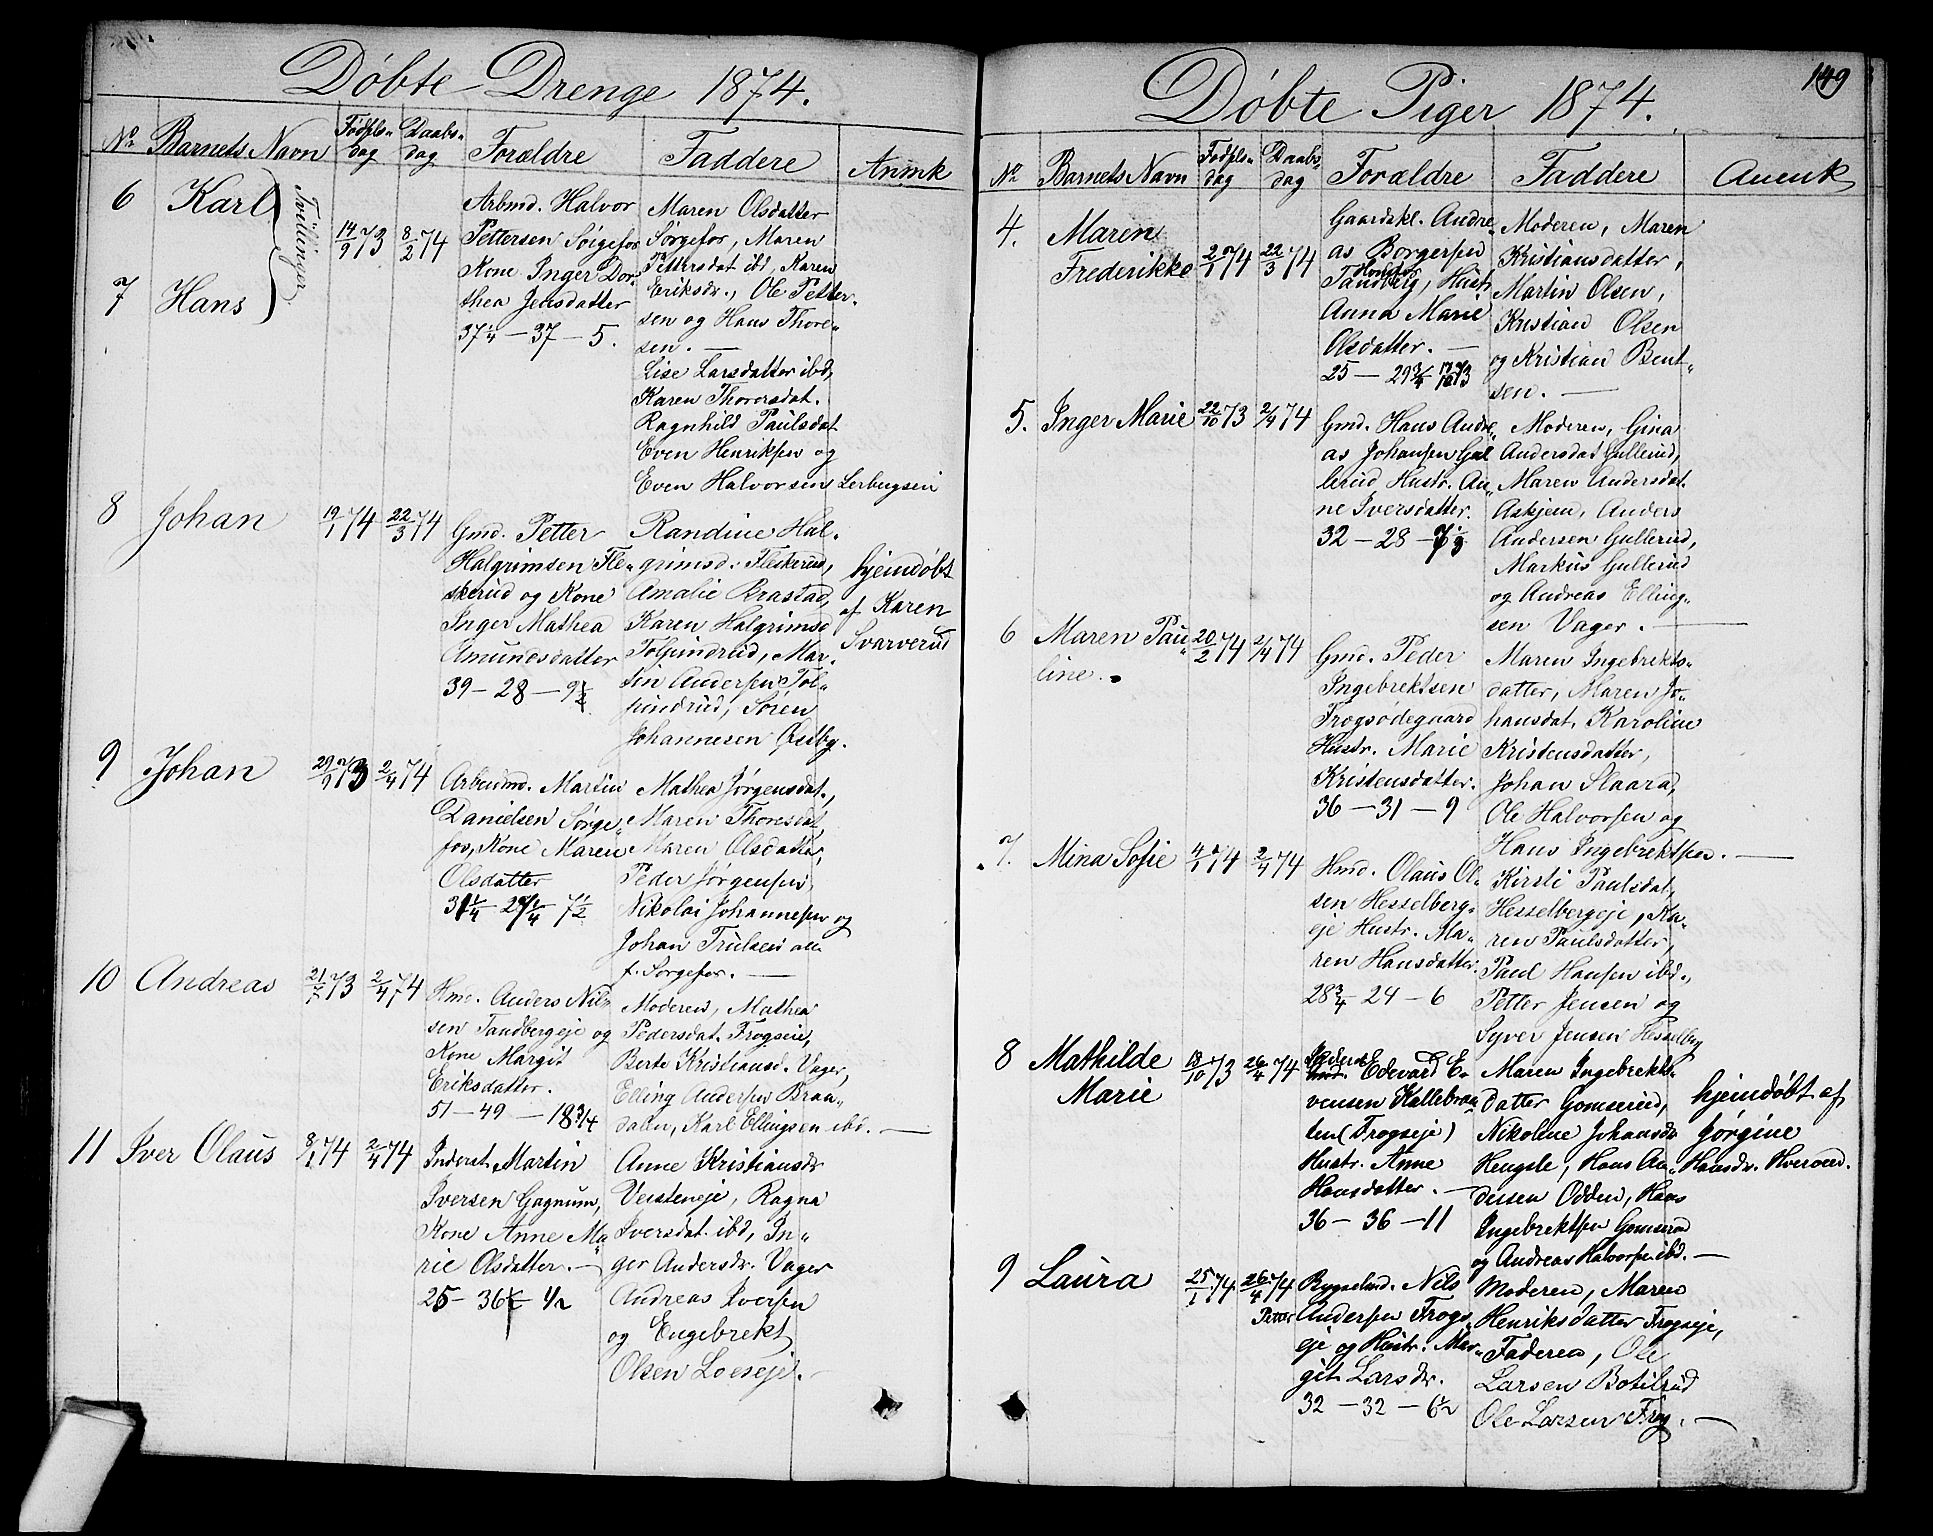 149
Döbte Drenge 1874.
No. Barnets Navn Födsls- dag Daabs- dag Forældre Faddere Anmk
6 Karl
7 Hans
Tvillinger
14/9 73 8/2 74
Arbmd. Halvor
Pettersen Sörgefos
Kone Inger Dor-
thea Jensdatter
37 1/4 — 37 — 5.
Maren Olsdatter
Sørgefos, Maren
Pettersdat ibd, Karen
Eriksdr., Ole Petter-
sen og Hans Thore-
sen. —
Lise Larsdatter ibd,
Karen Thorersdat.
Ragnhild Paulsdat
Even Henriksen og
Even Halvorsen Lerbugsein
8 Johan 19/1 74 22/3 74
Gmd. Petter
Halgrimsen Fle-
skerud og Kone
Inger Mathea
Amundsdatter
39 — 28 — 9 1/2
Randine Hal-
grimsd. Fleskerud,
Amalie Brastad,
Karen Halgrimsd
Tolpindrud, Mar-
tin Andersen Tol-
pindrud, Sören
Johannesen Østby.
hjemdöbt
af Karen
Svarverud
9 Johan 29/9 73 2/4 74
Arbeidmd. Martin
Danielsen Sørge-
fos, Kone Maren
Olsdatter
31 1/4 — 7 1/2
Mathea Jørgensdat.,
Maren Thoresdat,
Maren Olsdatter,
Peder Jørgensen,
Nikolai Johannesen og
Johan Trulsen alle
f. Sørgefos. —
10 Andreas 21/7 73 2/4 74
Hmd. Anders Nil-
sen Tandbergeje og
Kone Margit
Eriksdatter.
51 — 49 — 18 3/4
Moderen, Mathea
Pedersdat. Frogseie,
Berte Kristiansd. Vager,
Elling Andersen Braa-
dalen, Karl Ellingsen ibd. —
11 Iver Olaus 8/1 74 2/4 74
Inderst. Martin
Iversen Gagnum,
Kone Anne Ma-
rie Olsdatter. —
25 — 36 — 1/2
Anne Kristiansdr
Veisteneje, Ragna
Iversdat. ibd, In-
ger Andersdr. Vager
Andreas Iversen
og Engebrekt
Olsen Loeseje. —
Döbte Piger 1874.
No. Barnets Navn Födsls- dag Daabs- dag Forældre Faddere Anmk
4. Maren
Frederikke
2/1 74 22/3 74
Gaardskl. Andre-
as Borgersen
Tandberg, Hustr
Anna Marie
Olsdatter. —
25 — 29 3/4
Moderen, Maren
Kristiansdatter,
Martin Olsen,
Kristian Olsen
og Kristian Bent-
sen. —
5. Inger Marie 22/10 73 2/4 74
Gmd. Hans Andre-
as Johansen Gul
lerud Hustr. An-
ne Iversdatter.
32 — 28 —
Moderen, Gina
Andersdat Gullerud,
Maren Andersdat.
Askjem, Anders
Andersen Gullerud,
Markus Gullerud
og Andreas Elling-
sen Vager. —
6 Maren Pau-
line.
20/2 74 2/4 74
Gmd. Peder
Ingebrektsen
Frogsødegaard
Hustr. Marie
Kristensdatter.
36 — 31 — 9
Maren Ingebrekts-
datter, Maren Jo-
hansdat, Karoline
Kristensdatter,
Johan Slaara,
Ole Halvorsen og
Hans Ingebrektsen. —
7. Mina Sofie 4/1 74 2/4 74
Hmd. Olaus Ol-
sen Hesselberg-
eje Hustr. Ma-
ren Hansdatter.
28 3/4 24 — 6
Kirsti Paulsdat,
Hesselbergeje, Ka-
ren Paulsdatter,
Paul Hansen ibd.,
Petter Jensen og
Syver Jensen Hesselbg
8 Mathilde
Marie
18/10 73 26/4 74
Edevard E-
vensen Kallebraa-
ten (Frogseje)
Hustr. Anne
Hansdatter. —
36 — 36 — 11
Maren Ingebrekts-
datter Gomserud,
Nikoline Johansdr
Hengsle, Hans An-
dersen Odden, Hans
Ingebrektsen Gomserud
og Andreas Halvorsen ibd. —
hjemdöbt af
Jørgine
Hansdr. Hverven.
9 Laura 25/1 74 26/4 74
Petter
Bygselmd. Nils
Andersen Frogs-
eje og Hustr. Mar-
git Larsdr.
32 — 32 — 6 1/2
Moderen, Maren
Henriksdatter Frogseje,
Faderen, Ole
Larsen Botilrud
Ole Larsen Frog. —